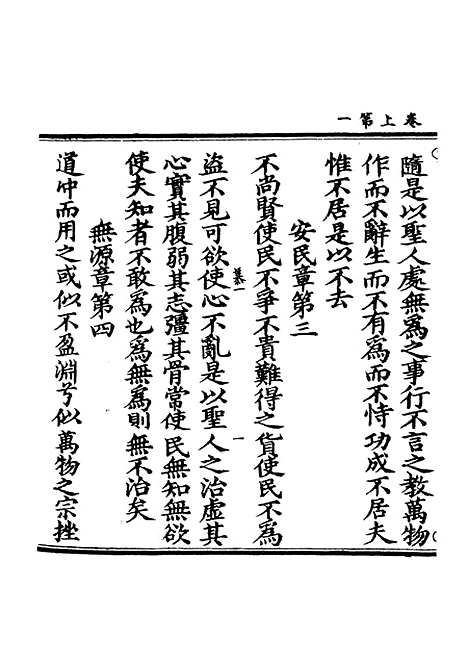 卷上第一
隨是以聖人處無爲之事行不言之教萬物
作而不辭生而不有爲而不恃功成不居夫
惟不居是以不去
安民章第三
不尚賢使民不爭不貴難得之貨使民不爲
盜不見可欲使心不亂是以聖人之治虛其
心實其腹弱其志彊其骨常使民無知無欲
使夫知者不敢爲也爲無爲則無不治矣
無源章第四
道沖而用之或似不盈淵兮似萬物之宗挫